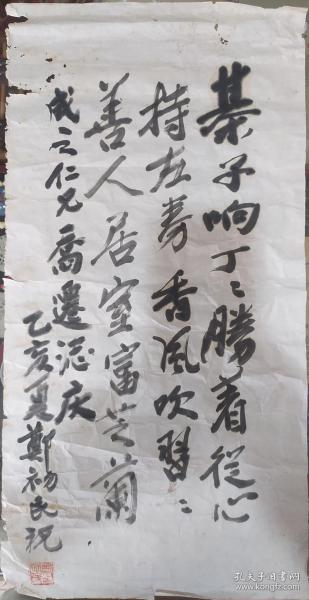 棊子响丁〻勝着從心
持在旁香風吹習〻
善人居室富芝蘭
成之仁兄喬遷誌庆
乙亥夏鄭初民祝
孔夫子旧书网